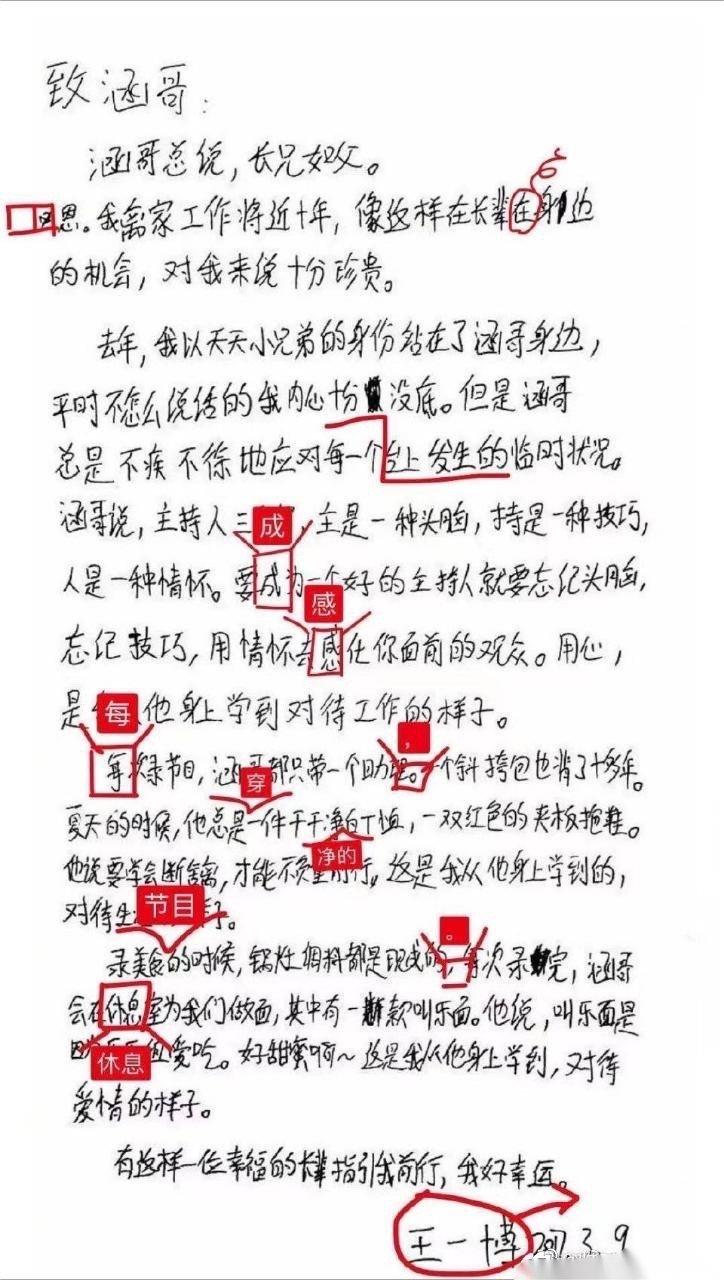 致涵哥：
涵哥总说，长兄如父。
恩。我离家工作将近十年，像这样在长辈在身边
的机会，对我来说十分珍贵。
去年，我以天天小兄弟的身份站在了涵哥身边，
平时不怎么说话的我内心十分没底。但是涵哥
总是不疾不徐地应对每一个台上发生的临时状况。
涵哥说，主持人三 成 ，主是一种头脑，持是一种技巧，
人是一种情怀。要成为一个好的主持人就要忘记头脑，
感
忘记技巧，用情怀去感住你面前的观众。用心，
是 每 他身上学到对待工作的样子。
，
每次录节目，涵哥都只带一个助理。一个斜挎包也背了十多年。
穿
夏天的时候，他总是一件干干净白T恤，一双红色的夹板拖鞋。
净的
他说要学会断舍离，才能不负重前行。这是我从他身上学到的，
对待生 节目 子。
。
录美食的时候，锅灶调料都是现成的，等次录完，涵哥
会在休息室为我们做面，其中有一款叫乐面。他说，叫乐面是
因 休息 爱吃。好甜蜜啊～这是我从他身上学到，对待
爱情的样子。
有这样一位幸福的长辈指引我前行，我好幸运。
王一博 2017.3.9